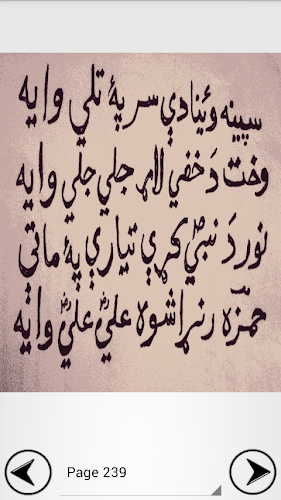 سپينه وئينا دې سر پۀ تلي وايه
وخت دَ خفي لاړ جلي جلي وايه
نور دَ نبيؐ کړې تيارې پۀ ماتې
حمزه رنړا شوه عليؓ عليؓ وايه
Page 239